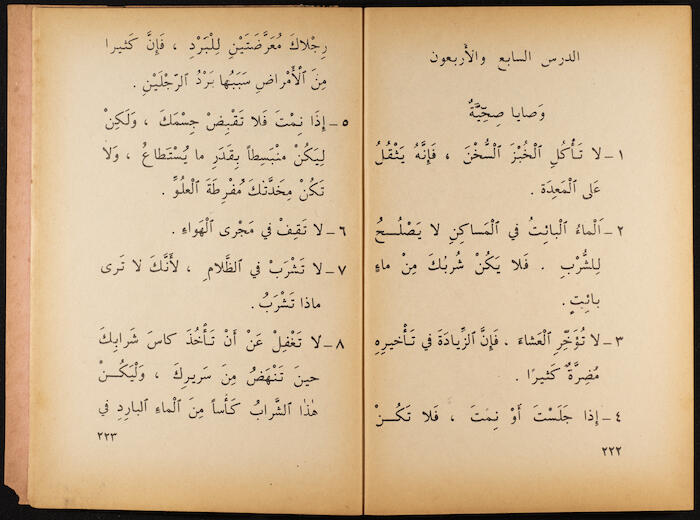 الدرس السابع والأربعون
وَصايا صِحِّيَّةٌ
١ ـ لا تَأْكُلِ ٱلْخُبْزَ ٱلسُّخْنَ ، فَإِنَّهُ يَثْقُلُ
عَلى ٱلْمَعِدَة .
٢ ـ اَلْماءُ ٱلْبائِتُ في ٱلْمَساكِنِ لا يَصْلُـــحُ
لِلشُّرْبِ . فَلا يَكُنْ شُرْبُكَ مِنْ ماءٍ
بائِتٍ .
٣ ـ لا تُؤَخِّرِ ٱلْعَشاءَ ، فَإِنَّ ٱلزِّيادَةَ في تَأْخيرِهِ
مُضِرَّةٌ كَثيرًا .
٤ ـ إِذا جَلَسْتَ أَوْ نِمْتَ ، فَلا تَكُـــنْ
٢٢٢
رِجْلاكَ مُعَرَّضَتَيْنِ لِلْبَرْدِ ، فَإِنَّ كَثيرا
مِنَ ٱلْأَمْراضِ سَبَبُها بَرْدُ ٱلرِّجْلَيْنِ .
٥ ـ إِذَا نِمْتَ فَلا تَقْبِضْ جِسْمَكَ ، وَلَكِنْ
لِيَكُنْ مُنْبَسِطاً بِقَدَرِ ما يُسْتَطاعُ ، وَلا
تَكُنْ مِخَدَّتُكَ مُفْرِطَةَ ٱلْعلُوِّ .
٦ ـ لا تَقِفْ في مَجْرى ٱلْهَواءِ .
٧ ـ لا تَشْرَبْ في ٱلظَّلامِ ، لأَنَّكَ لا تَرى
ماذا تَشْرَبُ .
٨ ـ لا تَغْفِلْ عَنْ أَنْ تَأْخُذَ كاسَ شَرابِكَ
حينَ تَنْهَضُ مِنَ سَريرِكَ ، وَلْيَكُـــنْ
هٰذا ٱلشَّرابُ كَأْساً مِنَ ٱلْماءِ ٱلبارِدِ في
٢٢٣